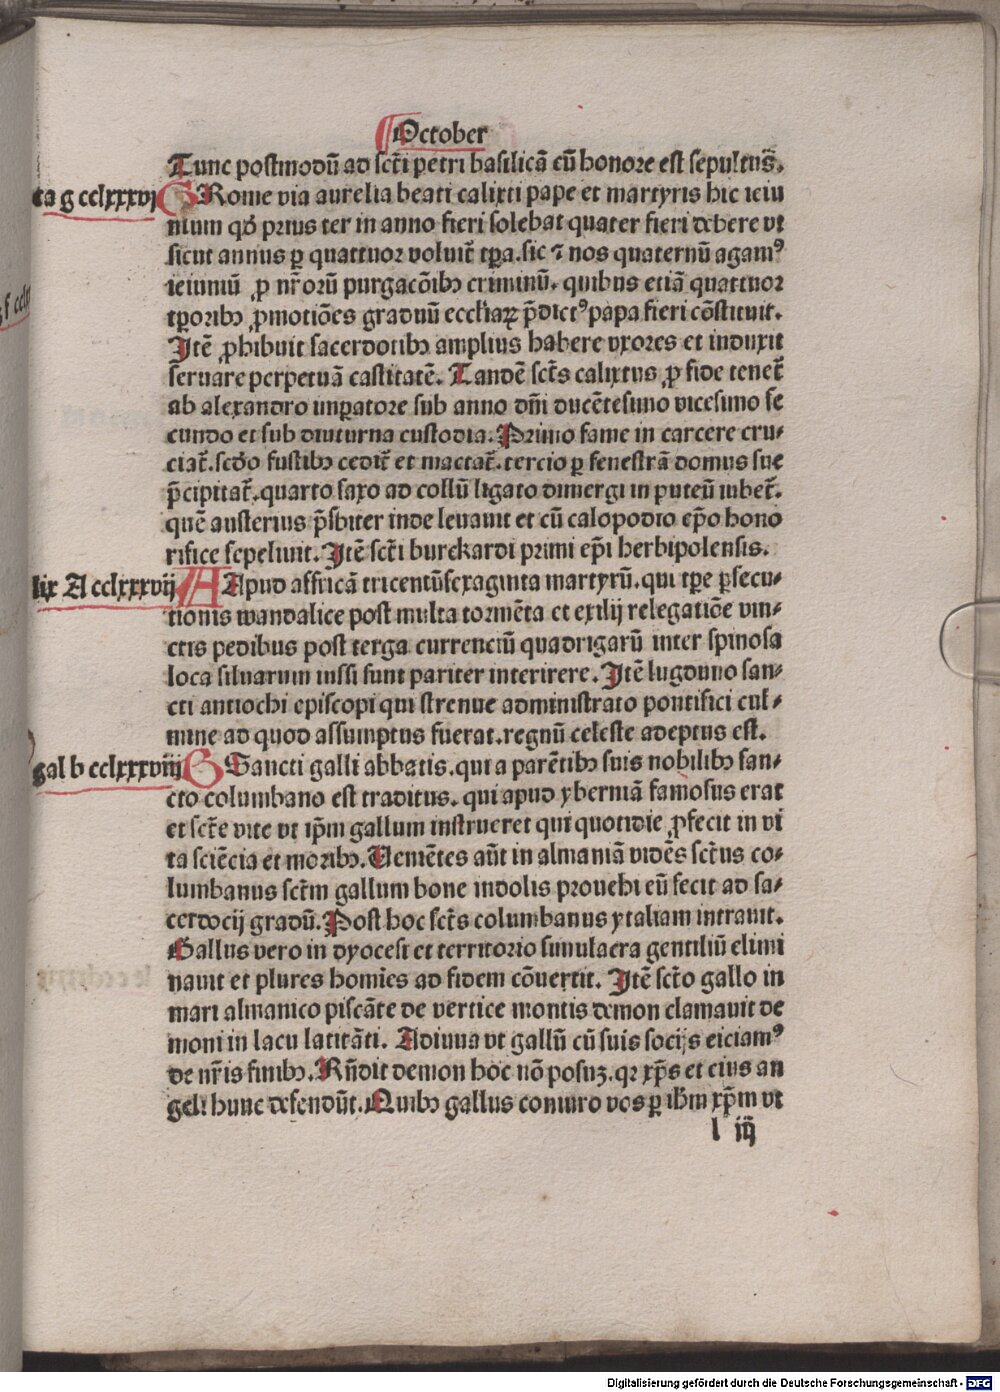 October
Tunc postmodū ad scti petri basilicā cū honore est sepultus.
ta g cclxxxvj Rome via aurelia beati calixti pape et martyris hic ieiu
nium qđ prius ter in anno fieri solebat quater fieri debere vt
sicut annus ꝑ quattuor voluit̄ tꝑa. sic ⁊ nos quaternū agamꝰ
ieiuniū ꝓ nr̄orū purgacōibꝫ criminū. quibus etiā quattuor
tꝑoribꝫ ꝓmotiōes graduū eccliaꝝ p̄dictꝰ papa fieri cōstituit.
Itē ꝓhibuit sacerdotibꝫ amplius habere vxores et induxit
seruare perpetuā castitatē. Tandē scts̄ calixtus ꝓ fide tenet̄
ab alexandro imꝑatore sub anno dñi ducētesimo vicesimo se
cundo et sub diuturna custodia. Primo fame in carcere cru⸗
ciat̄. scđo fustibꝫ cedit̄ et mactat̄. tercio ꝑ fenestrā domus sue
p̄cipitat̄. quarto saxo ad collū ligato dimergi in puteū iubet̄.
quē austerius p̄sbiter inde leuauit et cū calopodio epō hono
rifice sepeliuit. Itē scti burckardi primi epi herbipolensis.
lix A cclxxxvij Apud affricā tricentūsexaginta martyrū. qui tꝑe ꝑsecu⸗
tionis wandalice post multa tormēta et exilij relegatiōe vin⸗
ctis pedibus post terga currenciū quadrigarū inter spinosa
loca siluarum iussi sunt pariter interirere. Itē lugduno san⸗
cti antiochi episcopi qui strenue administrato pontifici cul⸗
mine ad quod assumptus fuerat. regnū celeste adeptus est.
gal b cclxxxviij Sancti galli abbatis. qui a parētibꝫ suis nobilibꝫ san⸗
cto columbano est traditus. qui apud yberniā famosus erat
et scte vite vt ip̄m gallum instrueret qui quotidie ꝓfecit in vi
ta sciēcia et moribꝫ. Uemētes aūt in almaniā vidēs sctus co⸗
lumbanus sctm gallum bone indolis prouehi eū fecit ad sa⸗
cerdocij gradū. Post hoc scts̄ columbanus ytaliam intrauit.
Gallus vero in dyocesi et territorio simulacra gentiliū elimi
nauit et plures homies ad fidem cōuertit. Itē scto gallo in
mari almanico piscāte de vertice montis demon clamauit de
moni in lacu latitāti. Adiuua vt gallū cū suis socijs eiciamꝰ
de nr̄is finibꝫ. Rn̄dit demon hoc nō possuꝫ. qꝛ xp̄s et eius an
geli hunc defendūt. Quibꝫ gallus coniuro vos ꝑ ihm xp̄m vt
l iij